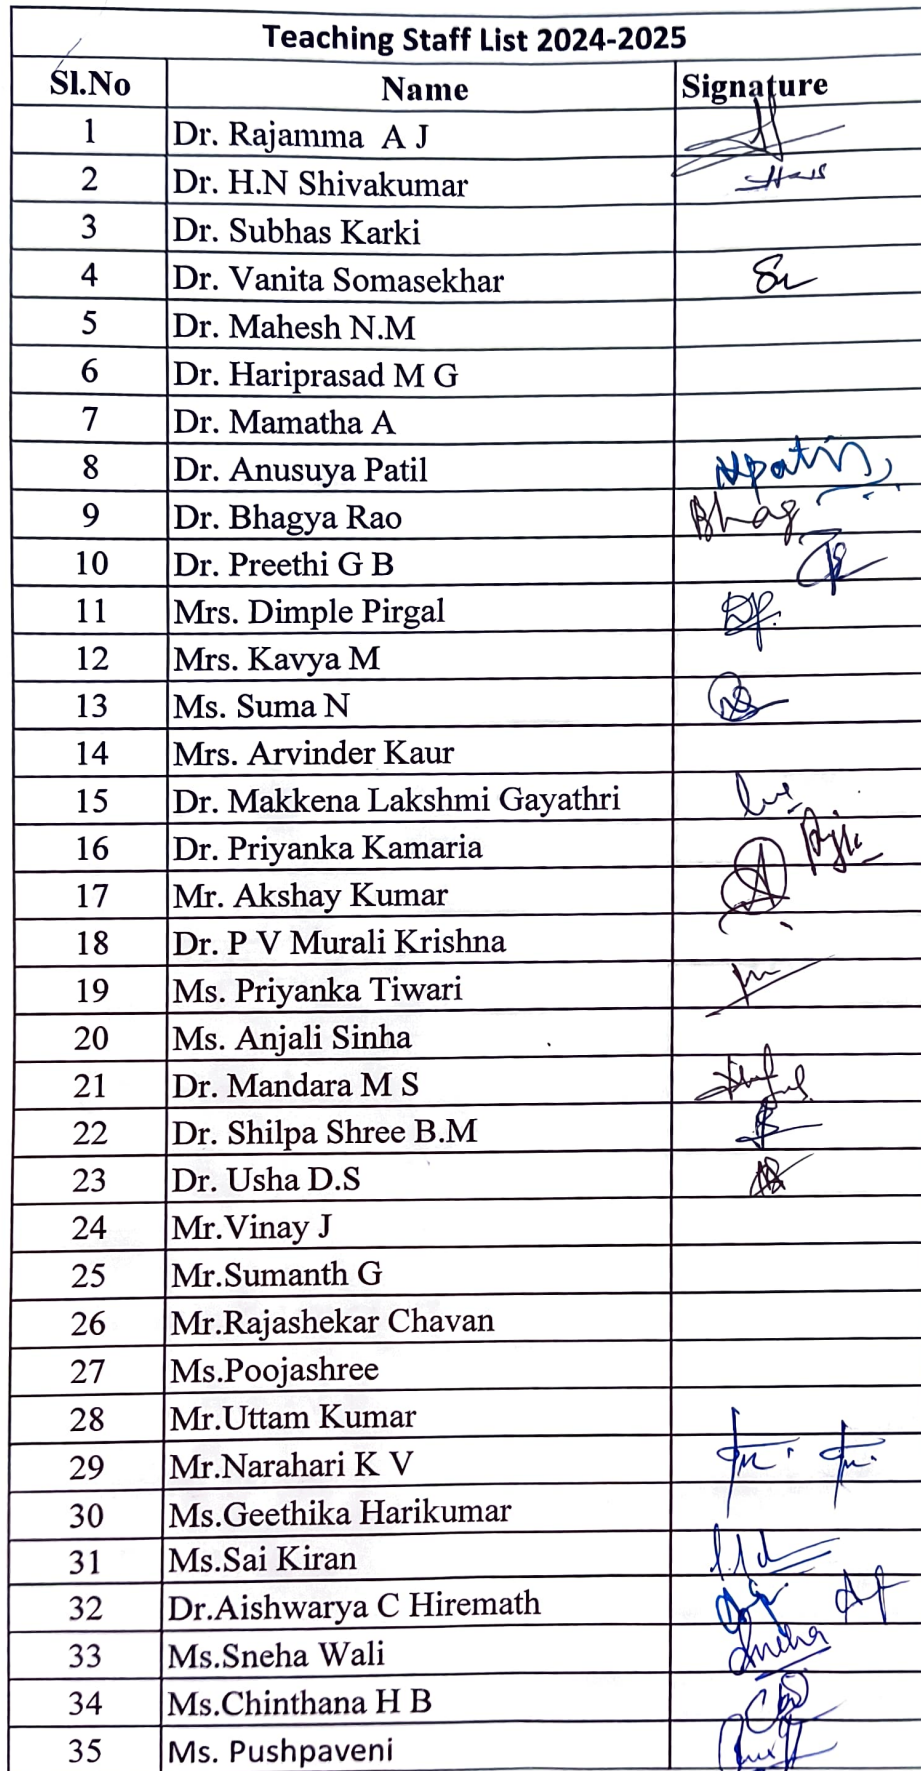 Teaching Staff List 2024-2025
Sl.No Name Signature
1 Dr. Rajamma A J
2 Dr. H.N Shivakumar
3 Dr. Subhas Karki
4 Dr. Vanita Somasekhar
5 Dr. Mahesh N.M
6 Dr. Hariprasad M G
7 Dr. Mamatha A
8 Dr. Anusuya Patil
9 Dr. Bhagya Rao Bhag
10 Dr. Preethi G B
11 Mrs. Dimple Pirgal
12 Mrs. Kavya M
13 Ms. Suma N
14 Mrs. Arvinder Kaur
15 Dr. Makkena Lakshmi Gayathri
16 Dr. Priyanka Kamaria
17 Mr. Akshay Kumar
18 Dr. P V Murali Krishna
19 Ms. Priyanka Tiwari
20 Ms. Anjali Sinha
21 Dr. Mandara M S
22 Dr. Shilpa Shree B.M
23 Dr. Usha D.S
24 Mr.Vinay J
25 Mr.Sumanth G
26 Mr.Rajashekar Chavan
27 Ms.Poojashree
28 Mr.Uttam Kumar
29 Mr.Narahari K V
30 Ms.Geethika Harikumar
31 Ms.Sai Kiran
32 Dr.Aishwarya C Hiremath
33 Ms.Sneha Wali Sneha
34 Ms.Chinthana H B
35 Ms. Pushpaveni